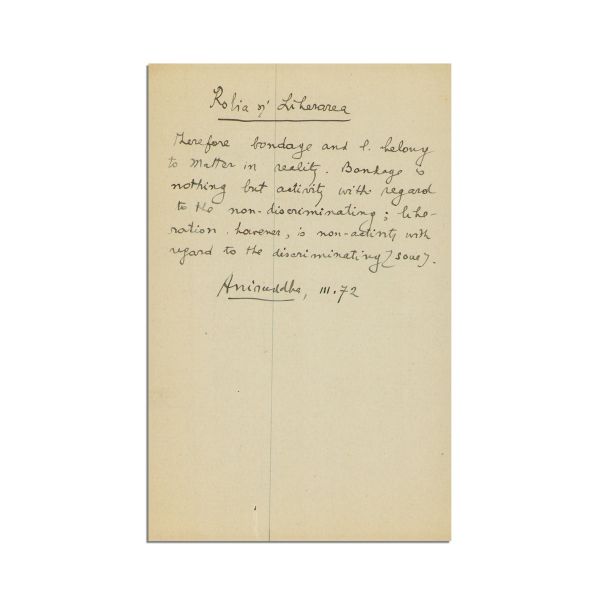 Robia și Liberarea
Therefore bondage and l. belong
to Matter in reality. Bondage is
nothing but activity with regard
to the non-discriminating; libe-
ration, however, is non-activity with
regard to the discriminating [soul].
Aniruddha, III.72